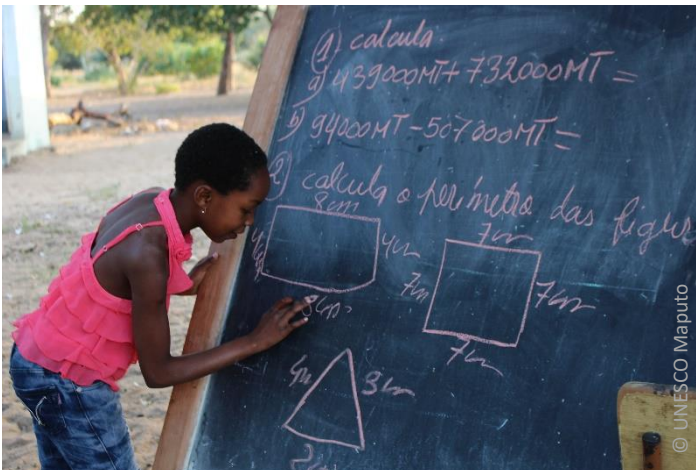 1) calcula.
a) 439000MT + 732000MT =
b) 94000MT - 507000MT =
2) calcula o perímetro das figur
8cm
4cm
4cm
8cm
7cm
7cm
7cm
7cm
3cm
© UNESCO Maputo